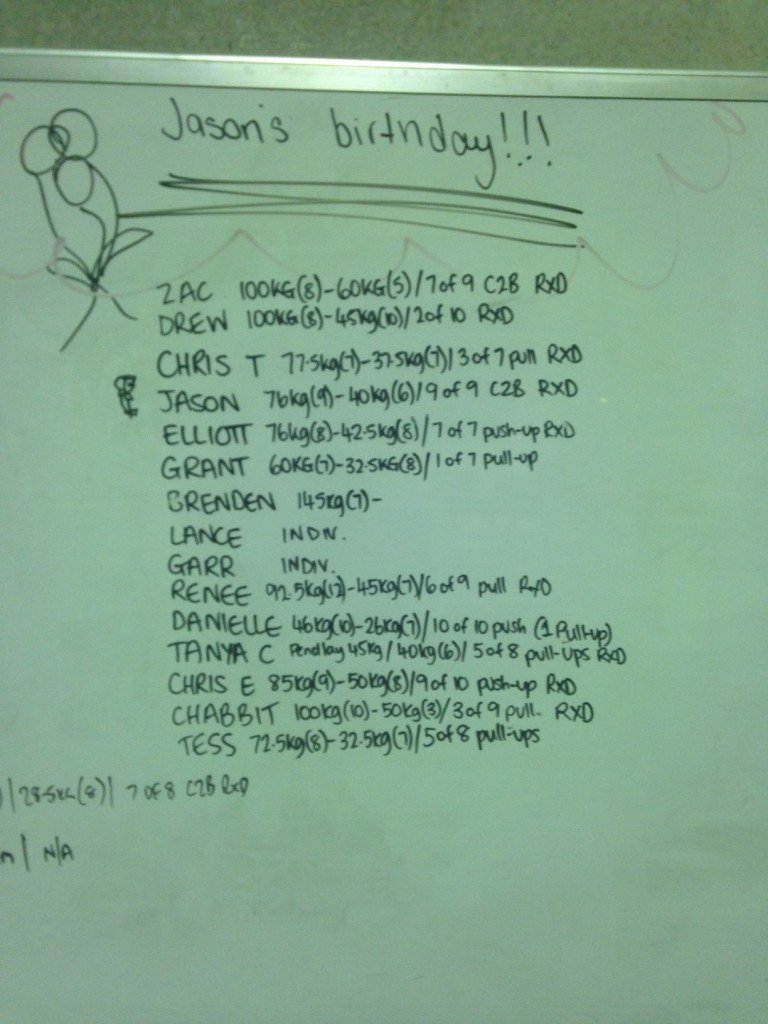 Jason's birthday!!!
ZAC 100KG(8)-60KG(5)/7 of 9 C2B RXD
DREW 100KG(8)-45kg(10)/2 of 10 RXD
CHRIS T 77.5kg(7)-37.5kg(7)/3 of 7 pull RXD
JASON 76kg(9)-40kg(6)/9 of 9 C2B RXD
ELLIOTT 76kg(8)-42.5kg(8)/7 of 7 push-up RXD
GRANT 60KG(7)-32.5KG(8)/1 of 7 pull-up
BRENDEN 145kg(7)-
LANCE INDIV.
GARR INDIV.
RENEE 92.5kg(12)-45kg(7)/6 of 9 pull RXD
DANIELLE 46kg(10)-26kg(7)/10 of 10 push (1 Pull-up)
TANYA C Pendlay 45kg/40kg(6)/5 of 8 pull-ups RXD
CHRIS E 85kg(9)-50kg(8)/9 of 10 push-up RXD
CHABBIT 100kg(10)-50kg(3)/3 of 9 pull- RXD
TESS 72.5kg(8)-32.5kg(7)/5 of 8 pull-ups
)|28.5KG(8)| 7 OF 8 C2B RXD
m| N/A